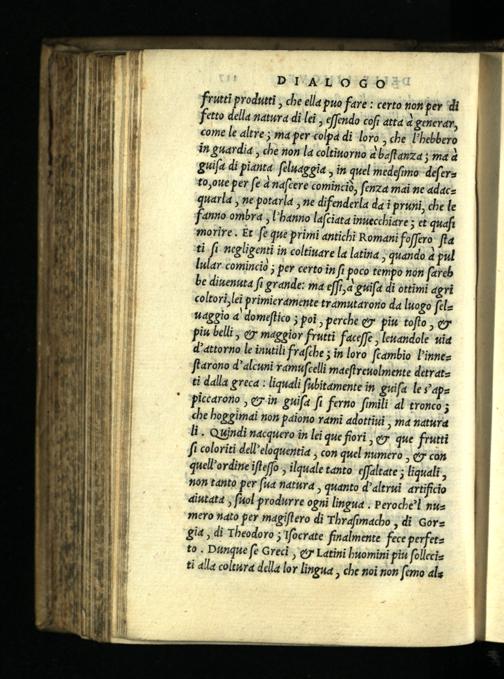 DIALOGO
frutti produtti, che ella puo fare: certo non per di
fetto della natura di lei, essendo cosi atta à generar,
come le altre; ma per colpa di loro, che l'hebbero
in guardia, che non la coltiuorno à bastanza; ma à
guisa di pianta seluaggia, in quel medesimo deser=
to, oue per se à nascere cominciò, senza mai ne adac=
quarla, ne potarla, ne difenderla da i pruni, che le
fanno ombra, l'hanno lasciata inuecchiare; et quasi
morire. Et se que primi antichi Romani fossero sta
ti si negligenti in coltiuare la latina, quando à pul
lular cominciò; per certo in si poco tempo non sareb
be diuenuta si grande: ma essi, à guisa di ottimi agri
coltori, lei primieramente tramutarono da luogo sel=
uaggio à domestico; poi, perche & piu tosto, &
piu belli, & maggior frutti facesse, leuandole uia
d'attorno le inutili frasche; in loro scambio l'inne=
starono d'alcuni ramuscelli maestreuolmente detrat=
ti dalla greca: liquali subitamente in guisa le s'ap=
piccarono, & in guisa si ferno simili al tronco;
che hoggimai non paiono rami adottiui, ma natura
li. Quindi nacquero in lei que fiori, & que frutti
si coloriti dell'eloquentia, con quel numero, & con
quell'ordine istesso, ilquale tanto essaltate; liquali,
non tanto per sua natura, quanto d'altrui artificio
aiutata, suol produrre ogni lingua. Peroche'l nu=
mero nato per magistero di Thrasimacho, di Gor=
gia, di Theodoro; Isocrate finalmente fece perfet=
to. Dunque se Greci, & Latini huomini piu solleci=
ti alla coltura della lor lingua, che noi non semo al=